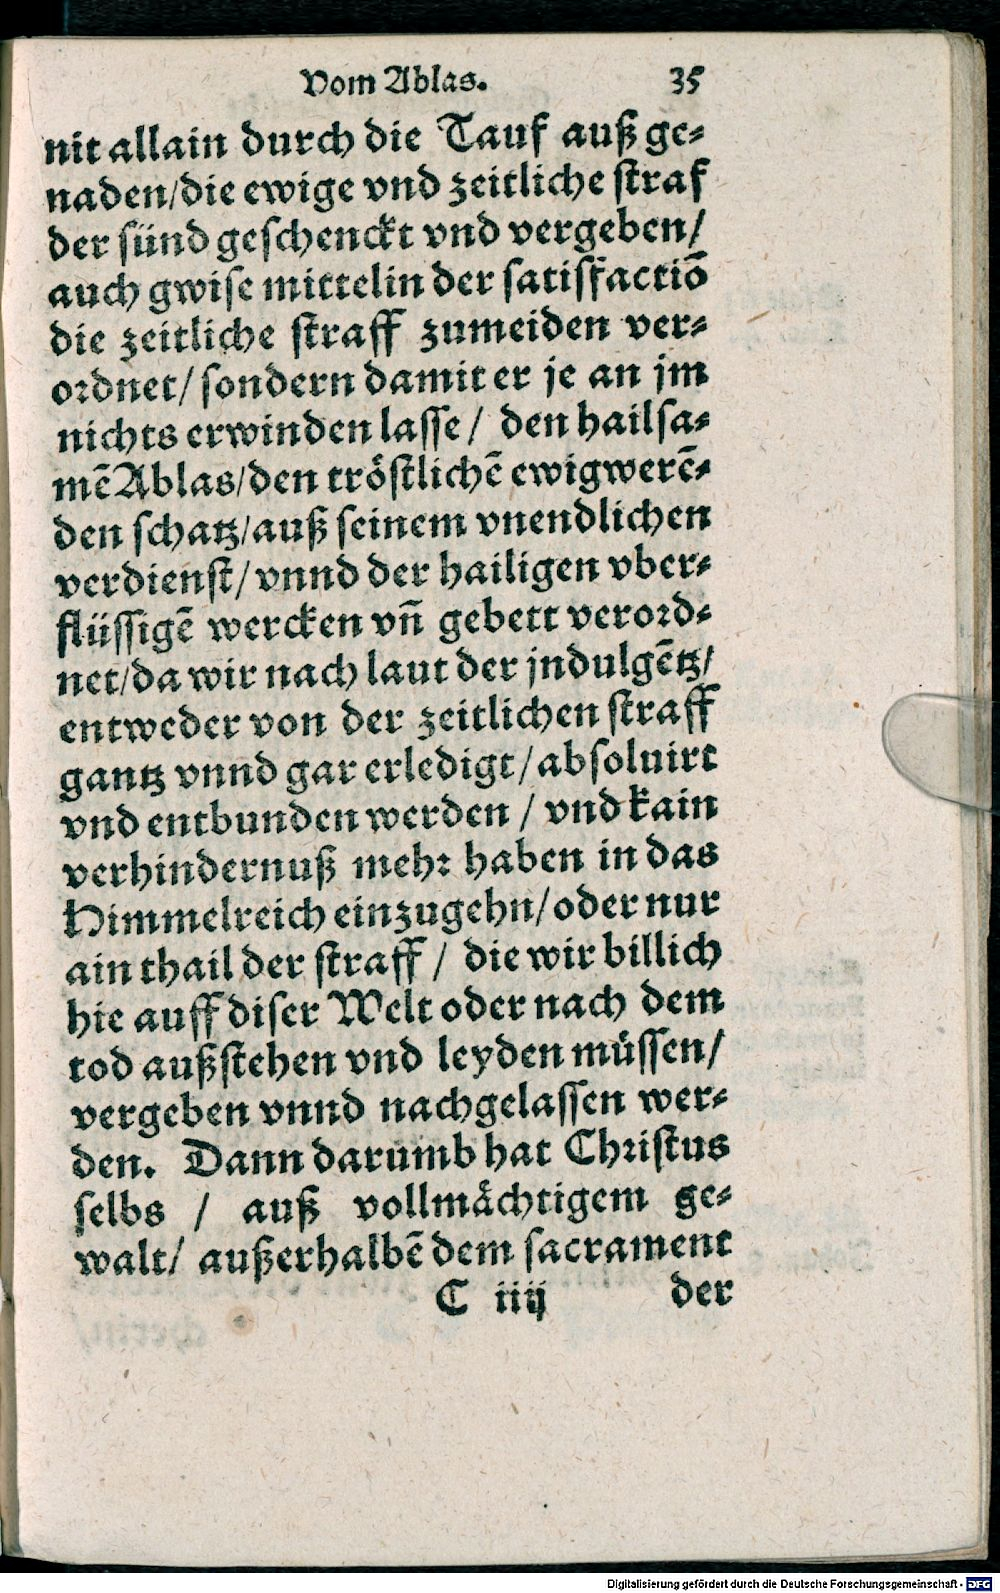 Vom Ablas. 35
nit allain durch die Tauf auß ge⸗
naden/die ewige vnd zeitliche straf
der sünd geschenckt vnd vergeben/
auch gwise mittelin der satisfactiõ
die zeitliche straff zumeiden ver⸗
ordnet/ sondern damit er je an jm
nichts erwinden lasse/ den hailsa⸗
mẽ Ablas/den tröstlichẽ ewigwerẽ⸗
den schatz/auß seinem vnendlichen
verdienst/ vnnd der hailigen vber⸗
flüssigẽ wercken vñ gebett verord⸗
net/da wir nach laut der jndulgẽtz/
entweder von der zeitlichen straff
gantz vnnd gar erledigt/absoluirt
vnd entbunden werden / vnd kain
verhindernuß mehr haben in das
Himmelreich einzugehn/oder nur
ain thail der straff / die wir billich
hie auff diser Welt oder nach dem
tod außstehen vnd leyden müssen/
vergeben vnnd nachgelassen wer⸗
den. Dann darumb hat Christus
selbs / auß vollmächtigem ge⸗
walt/ außerhalbẽ dem sacrament
C iiij der
Digitalisierung gefördert durch die Deutsche Forschungsgemeinschaft - DFG